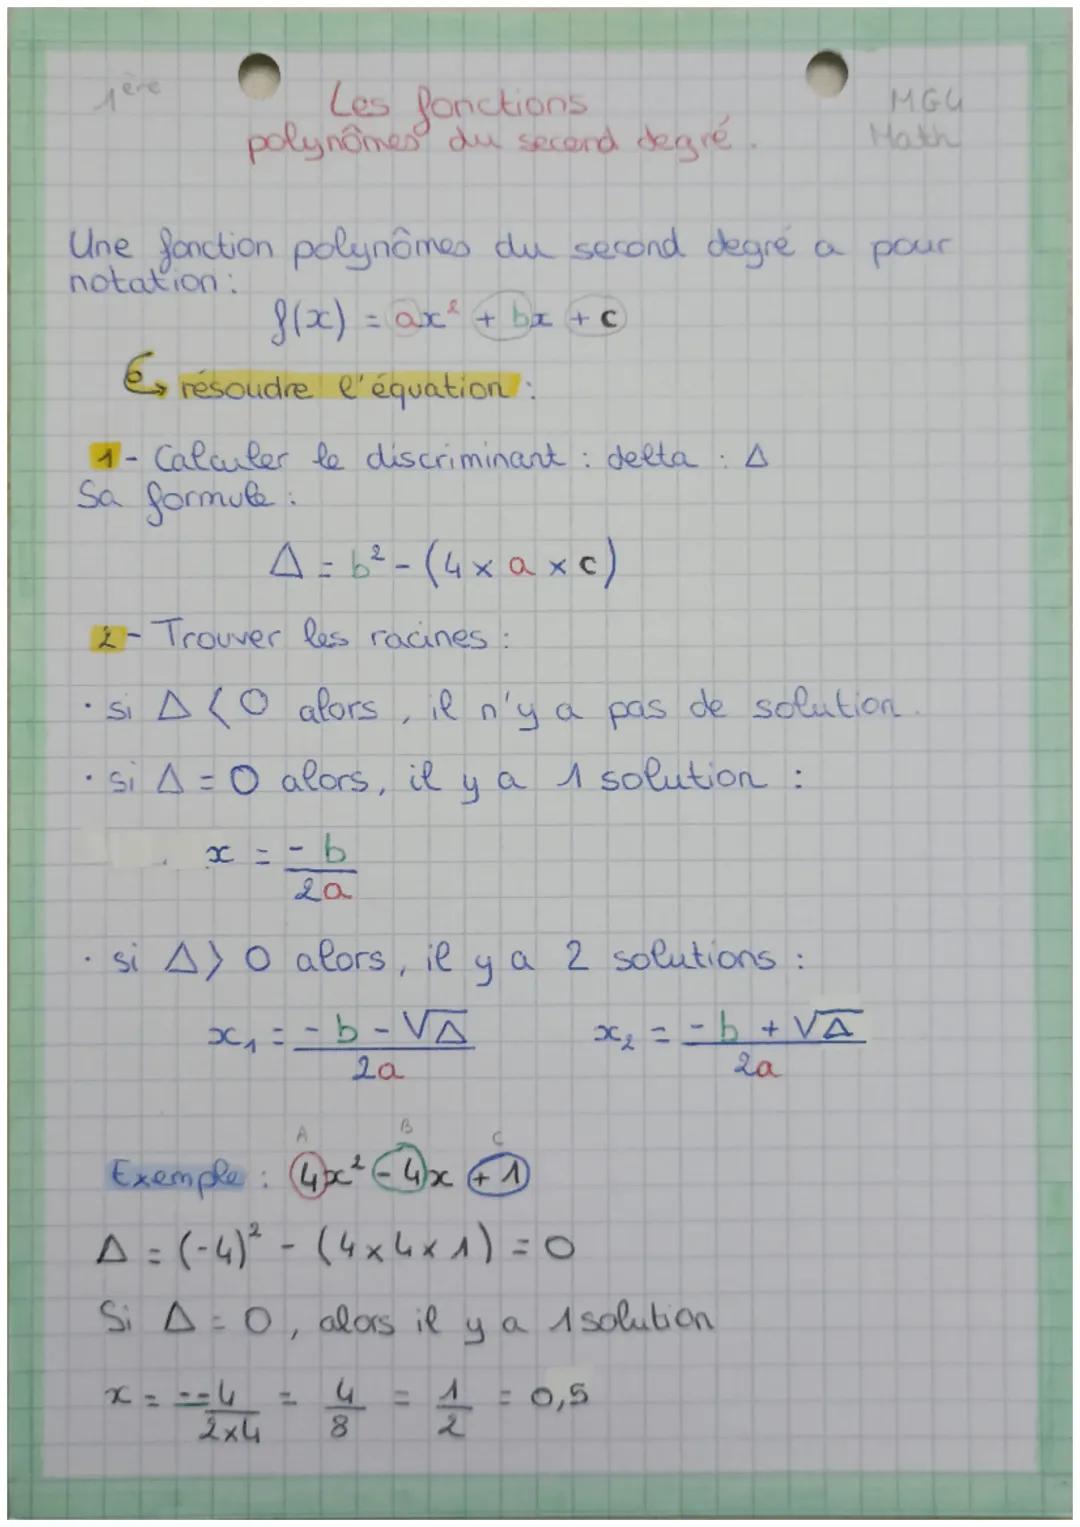 1ère
Les fonctions
polynômes du second degré.
MG4
Math
Une fonction polynômes du second degré a pour
notation :
f(x) = ax² + bx + c
résoudre l'équation :
1 - Calculer le discriminant : delta : Δ
Sa formule :
Δ = b² - (4 × a × c)
2 - Trouver les racines :
• si Δ < 0 alors, il n'y a pas de solution.
• si Δ = 0 alors, il y a 1 solution :
x = -b / 2a
• si Δ > 0 alors, il y a 2 solutions :
x₁ = -b - √Δ / 2a    x₂ = -b + √Δ / 2a
A B C
Exemple : 4x² - 4x + 1
Δ = (-4)² - (4×4×1) = 0
Si Δ = 0, alors il y a 1 solution
x = --4 / 2×4 = 4/8 = 1/2 = 0,5